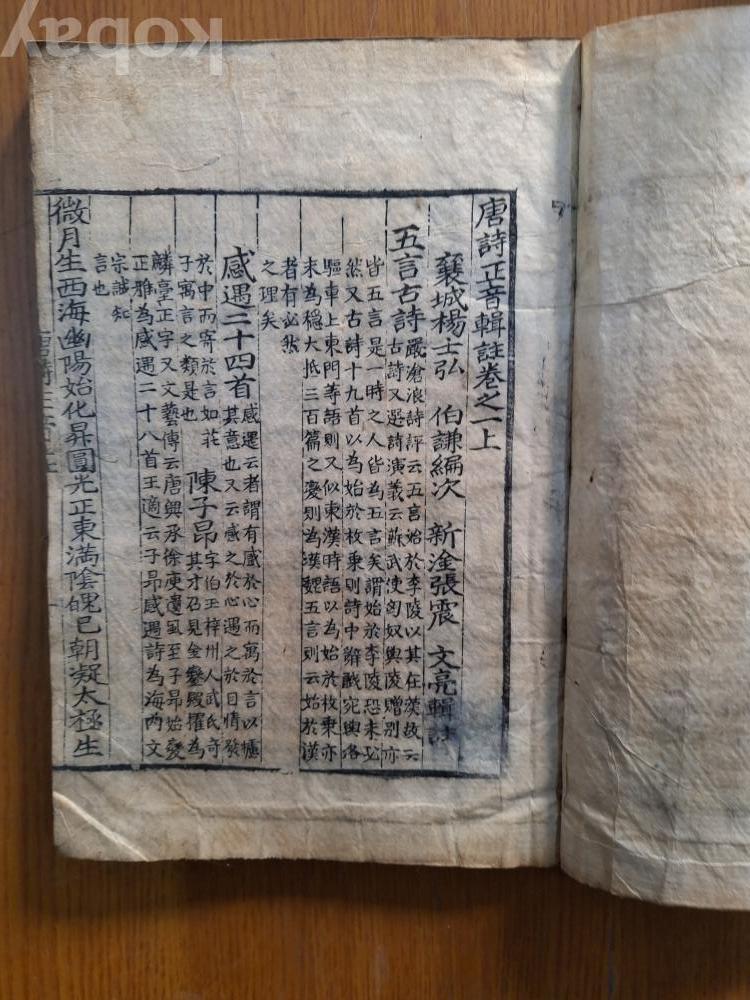 唐詩正音輯註卷之一上
襄城楊士弘 伯謙編次 新淦張震 文亮輯註
五言古詩
嚴滄浪詩評云五言始於李陵以其在漢故云
古詩又選詩演義云蘇武使匈奴與陵贈別亦
皆五言是一時之人皆為五言矣謂始於李陵恐未必
然又古詩十九首以為始於枚乗則詩中辭戱宛與洛
驅車上東門等語則又似東漢時語以為始於枚乗亦
未為穩大抵三百篇之変則為漢魏五言則云始於漢
者有必然
之理矣
感遇二十四首
感遇云者謂有感於心而寓於言以攄
其意也又云感之於心遇之於目情發
於中而寄於言如莊
子寓言之類是也
陳子昂
字伯玉梓州人武氏奇
其才召見金鑾殿擢為
麟臺正字又文藝傳云唐興承徐庾遺風至子昂始變
正雅為感遇二十八首王適云子昂感遇詩為海内文
宗誠知
言也
微月生西海幽陽始化昇圓光正東滿陰魄已朝凝太極生
kobay